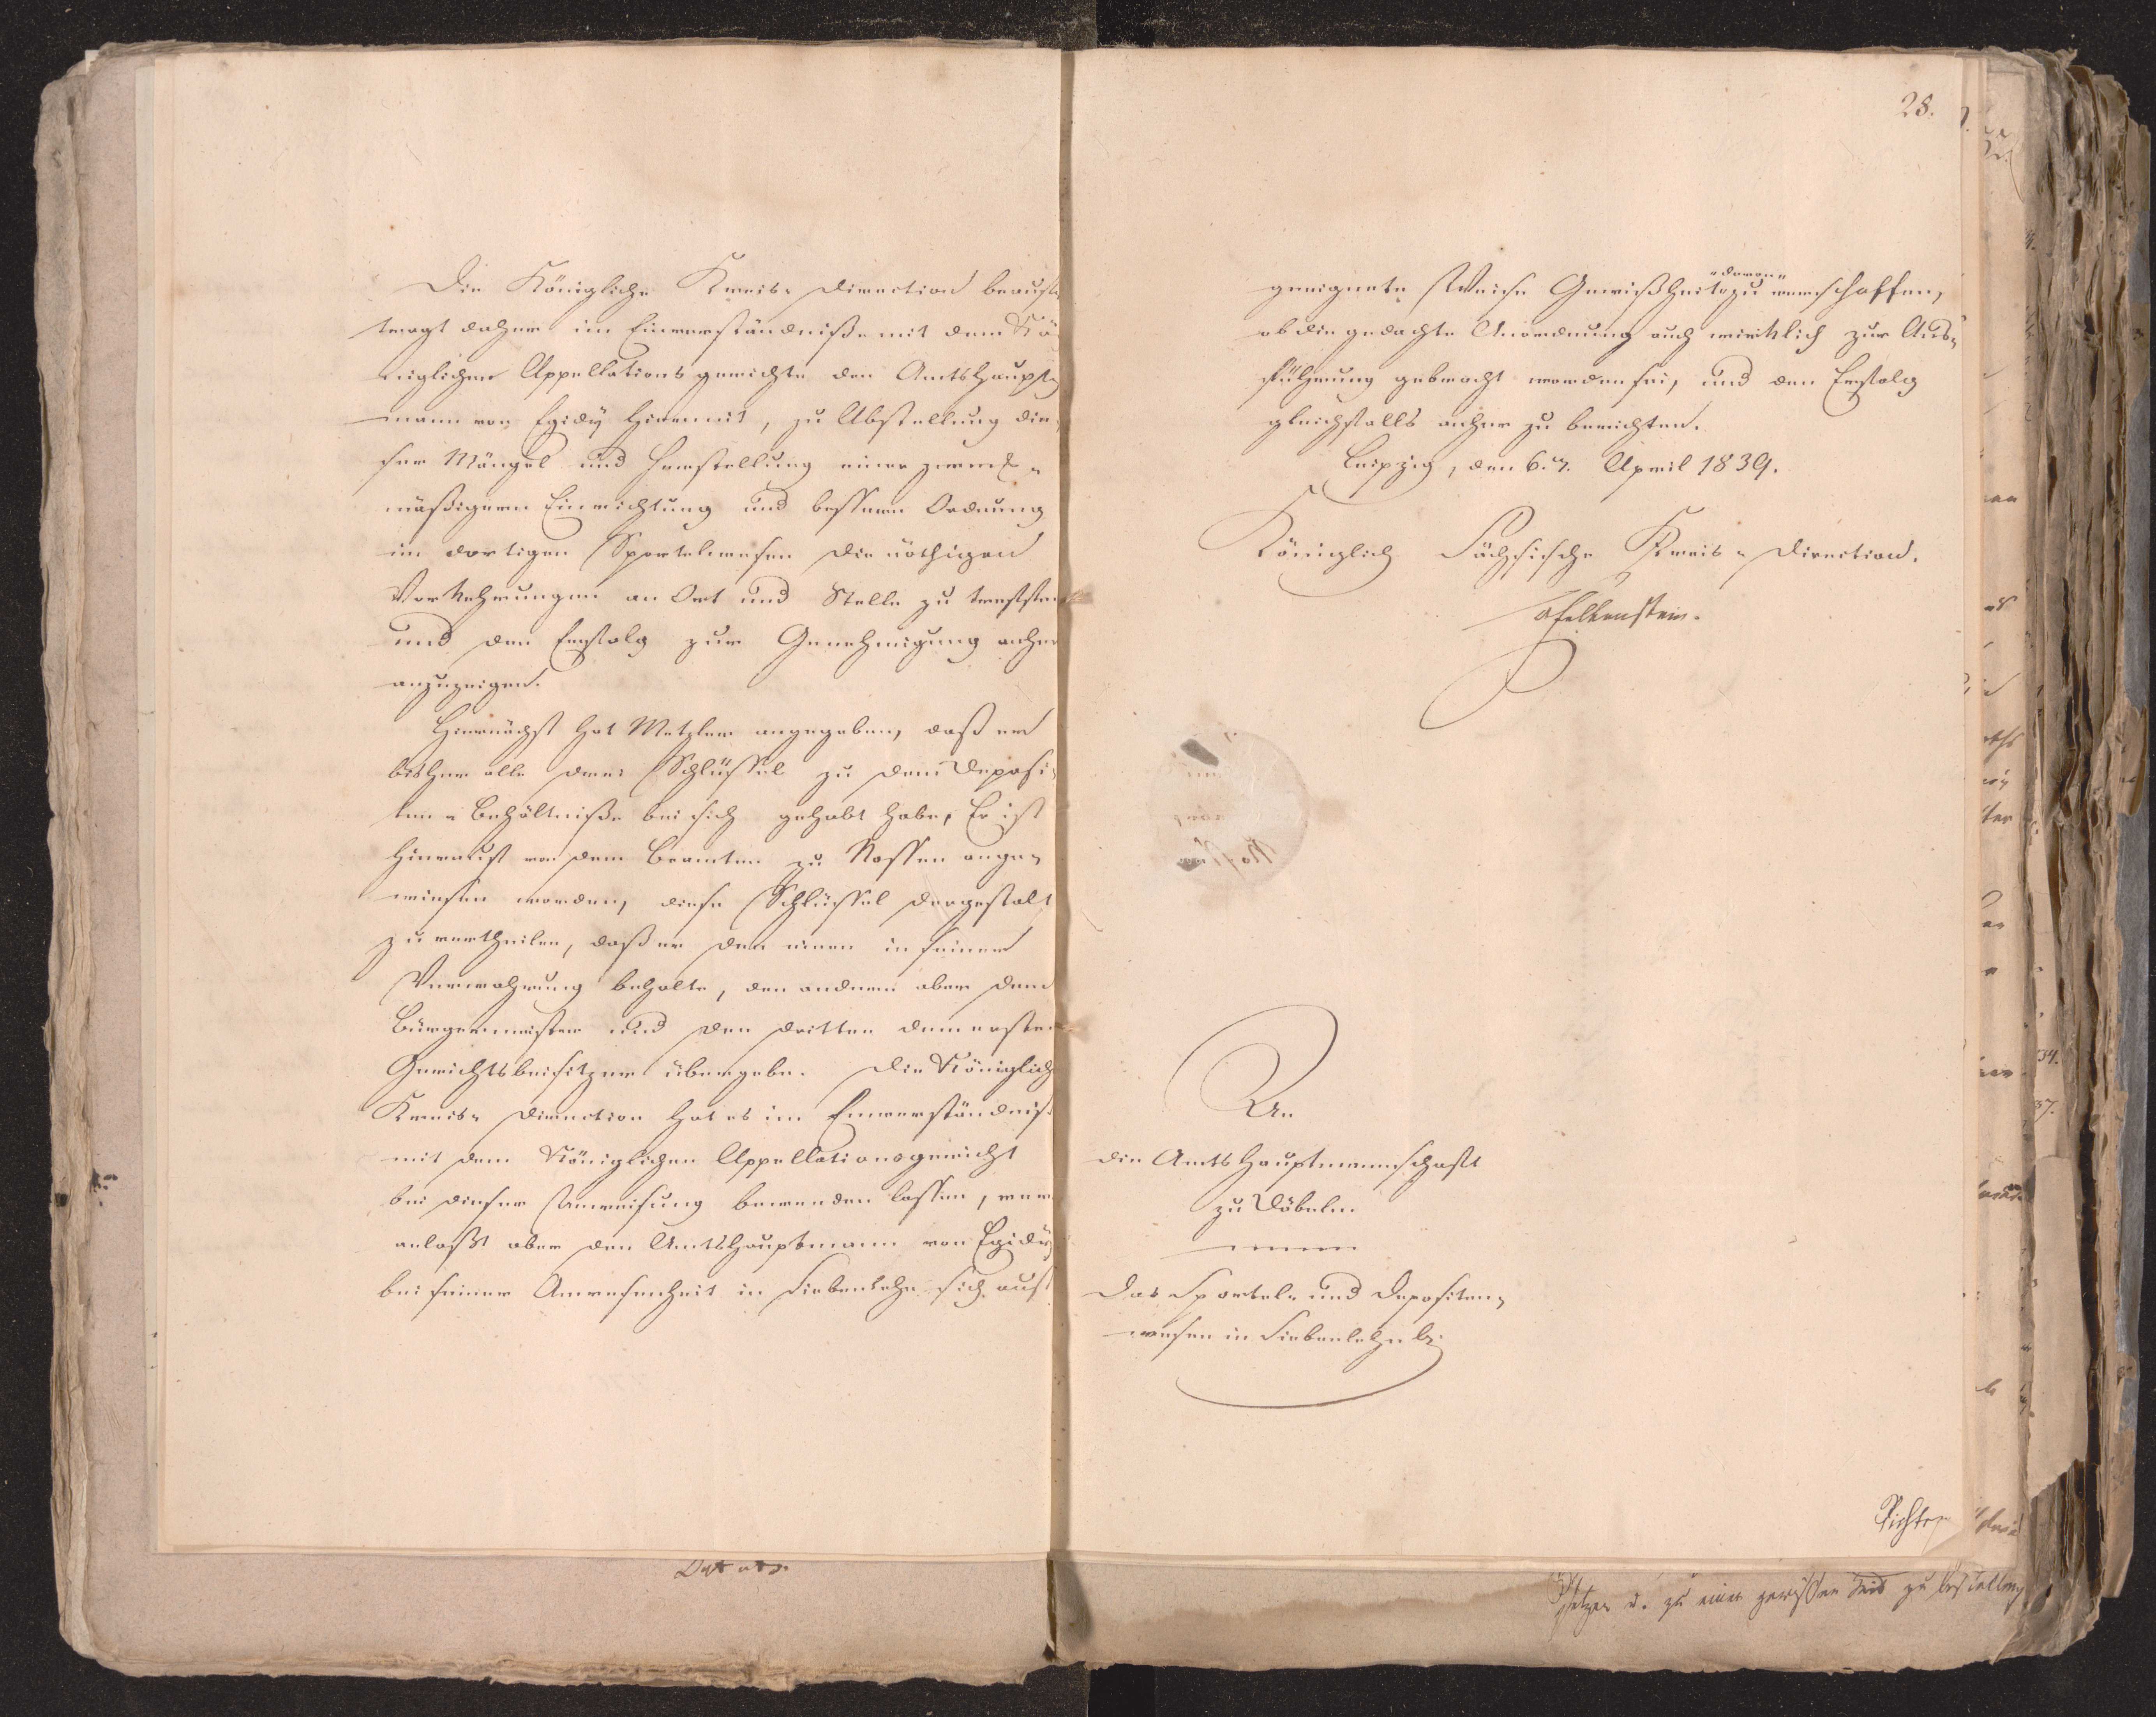 Die Königliche Kreis-Direction beauf-
tragt daher im Einverständniße mit dem Kö-
niglichen Appellationsgerichte den Amtshaupt-
mann von Egidy hiermit, zu Abstellung die-
ser Mängel und Herstellung einer zweck-
mäßigern Einrichtung und bessern Ordnung
im dortigen Sportelwesen die nöthigen
Vorkehrungen an Ort und Stelle zu treffen
und den Erfolg zur Genehmigung anher
anzuzeigen.
Hiernächst hat Metzler angegeben, daß er
bisher alle drei Schlüssel zu dem Deposi-
ten-Behältniße bei sich gehabt habe, Er ist
hierauf von dem Beamten zu Nossen ange-
wiesen worden, diese Schlüssel dergestalt
zu vertheilen, daß er den einen in seiner
Verwahrung behalte, den andern aber dem
Bürgermeister und den dritten dem ersten
Gerichtsbeisitzer übergebe. Die Königliche
Kreis-Direction hat es im Einverständniß
mit dem Königlichen Appellationsgericht
bei dieser Anweisung bewenden lassen, ver-
anlaßt aber den Amtshauptmann von Egidy
bei seiner Anwesenheit in Siebenlehn sich auf
28.
geeignete Weise Gewißheit davon zu verschaffen,
ob die gedachte Anordnung auch wirklich zur Aus-
führung gebracht worden sei, und den Erfolg
gleichfalls anher zu berichten.
Leipzig, den 6. April 1839.
Königlich Sächsische Kreis-Direction.
vFalkenstein.
An
die Amtshauptmannschaft
zu Döbeln.
Das Sportel- und Depositen-
wesen in Siebenlehn btr.
Richter
u. zu einer gewissen Zeit zu bestellen